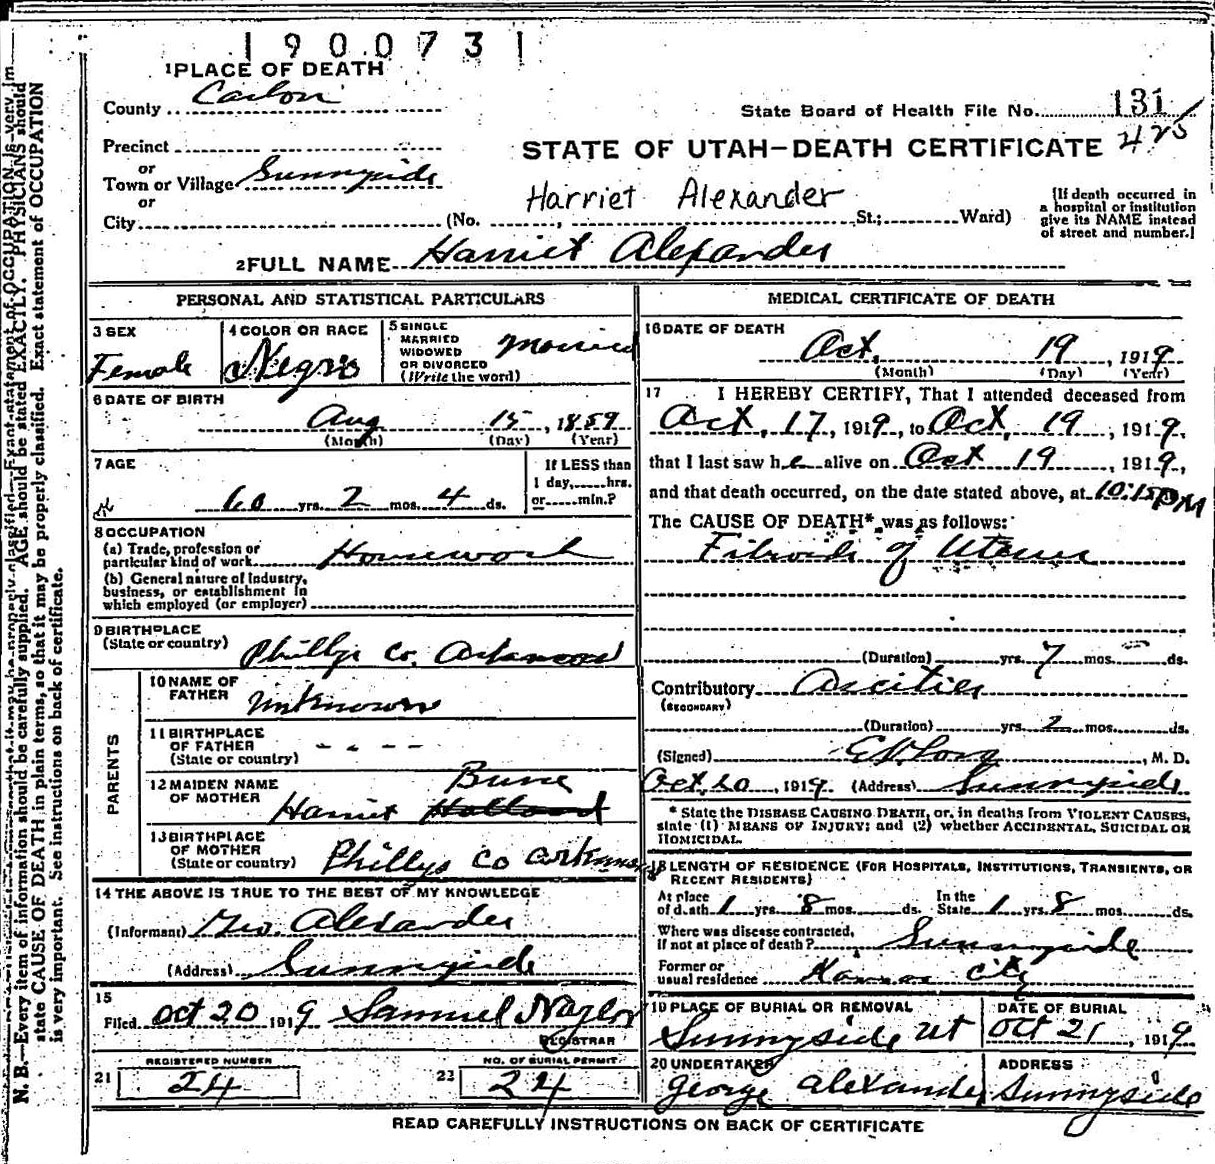 1900731
1 PLACE OF DEATH
County Carbon
State Board of Health File No. 131
Precinct
or
STATE OF UTAH-DEATH CERTIFICATE 425
Town or Village Sunnyside
or
Harriet Alexander
City (No. , St.; Ward)
[If death occurred in
a hospital or institution
give its NAME instead
of street and number.]
2 FULL NAME Harriet Alexander
PERSONAL AND STATISTICAL PARTICULARS
3 SEX
Female
4 COLOR OR RACE
Negro
5 SINGLE
MARRIED
WIDOWED
OR DIVORCED
(Write the word)
Married
6 DATE OF BIRTH
Aug 15, 1859
(Month) (Day) (Year)
7 AGE
60 yrs. 2 mos. 4 ds.
If LESS than
1 day, hrs.
or min.?
8 OCCUPATION
(a) Trade, profession or
particular kind of work Housework
(b) General nature of Industry,
business, or establishment in
which employed (or employer)
9 BIRTHPLACE
(State or country) Phillys Co. Arkansas
PARENTS
10 NAME OF
FATHER Unknown
11 BIRTHPLACE
OF FATHER - - - -
(State or country)
12 MAIDEN NAME
OF MOTHER Harriet Holland
13 BIRTHPLACE
OF MOTHER
(State or country) Phillys Co Arkansas
14 THE ABOVE IS TRUE TO THE BEST OF MY KNOWLEDGE
(Informant) Geo. Alexander
(Address) Sunnyside
15
Filed Oct 20 1919 Samuel Naylor
REGISTRAR
REGISTERED NUMBER
21 24
NO. OF BURIAL PERMIT
22 24
MEDICAL CERTIFICATE OF DEATH
16 DATE OF DEATH
Oct. 19, 1919
(Month) (Day) (Year)
17 I HEREBY CERTIFY, That I attended deceased from
Oct, 17, 1919, to Oct, 19, 1919,
that I last saw he alive on Oct 19, 1919,
and that death occurred, on the date stated above, at 10:15 PM
The CAUSE OF DEATH* was as follows:
Fibroids of Uterus
(Duration) yrs. 7 mos. ds.
Contributory Ascities
(SECONDARY)
(Duration) yrs. 2 mos. ds.
(Signed) , M. D.
Oct. 20, 1919 (Address) Sunnyside
* State the DISEASE CAUSING DEATH, or, in deaths from VIOLENT CAUSES,
state (1) MEANS OF INJURY; and (2) whether ACCIDENTAL, SUICIDAL OR
HOMICIDAL.
18 LENGTH OF RESIDENCE (FOR HOSPITALS, INSTITUTIONS, TRANSIENTS, OR
RECENT RESIDENTS)
At place
of death 1 yrs. 8 mos. ds.
In the
State 1 yrs. 8 mos. ds.
Where was disease contracted,
if not at place of death? Sunnyside
Former or
usual residence Kansas City
19 PLACE OF BURIAL OR REMOVAL
Sunnyside Ut
DATE OF BURIAL
Oct 21, 1919
20 UNDERTAKER
George Alexander
ADDRESS
Sunnyside
READ CAREFULLY INSTRUCTIONS ON BACK OF CERTIFICATE
N. B.—Every item of information should be carefully supplied. AGE should be stated EXACTLY. PHYSICIANS should
state CAUSE OF DEATH in plain terms, so that it may be properly classified. Exact statement of OCCUPATION
is very important. See instructions on back of certificate.